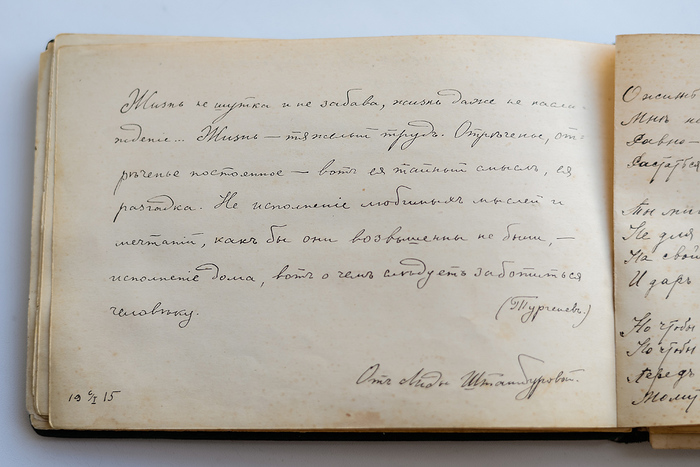 Жизнь не шутка и не забава, жизнь даже не насла-
жденіе... Жизнь — тяжелый трудъ. Отреченіе, от-
реченье постоянное — вотъ ея тайный смыслъ, ея
разгадка. Не исполненіе любимыхъ мыслей и
мечтаній, какъ бы они возвышенны не были, —
исполненіе дома, вотъ о чемъ слѣдуетъ заботиться
человѣку.
(Тургеневъ.)
Отъ Лиды
19 6/I 15
Мнѣ не
Равно—
Разстаться
Ты
Не для
На свой
И даръ
Но чтобы
Но чтобы
Передъ
Тому